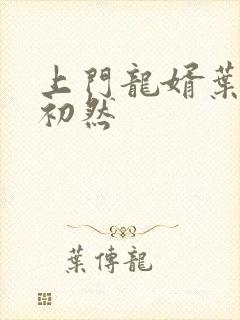 上門龍婿葉
初然
葉傳龍